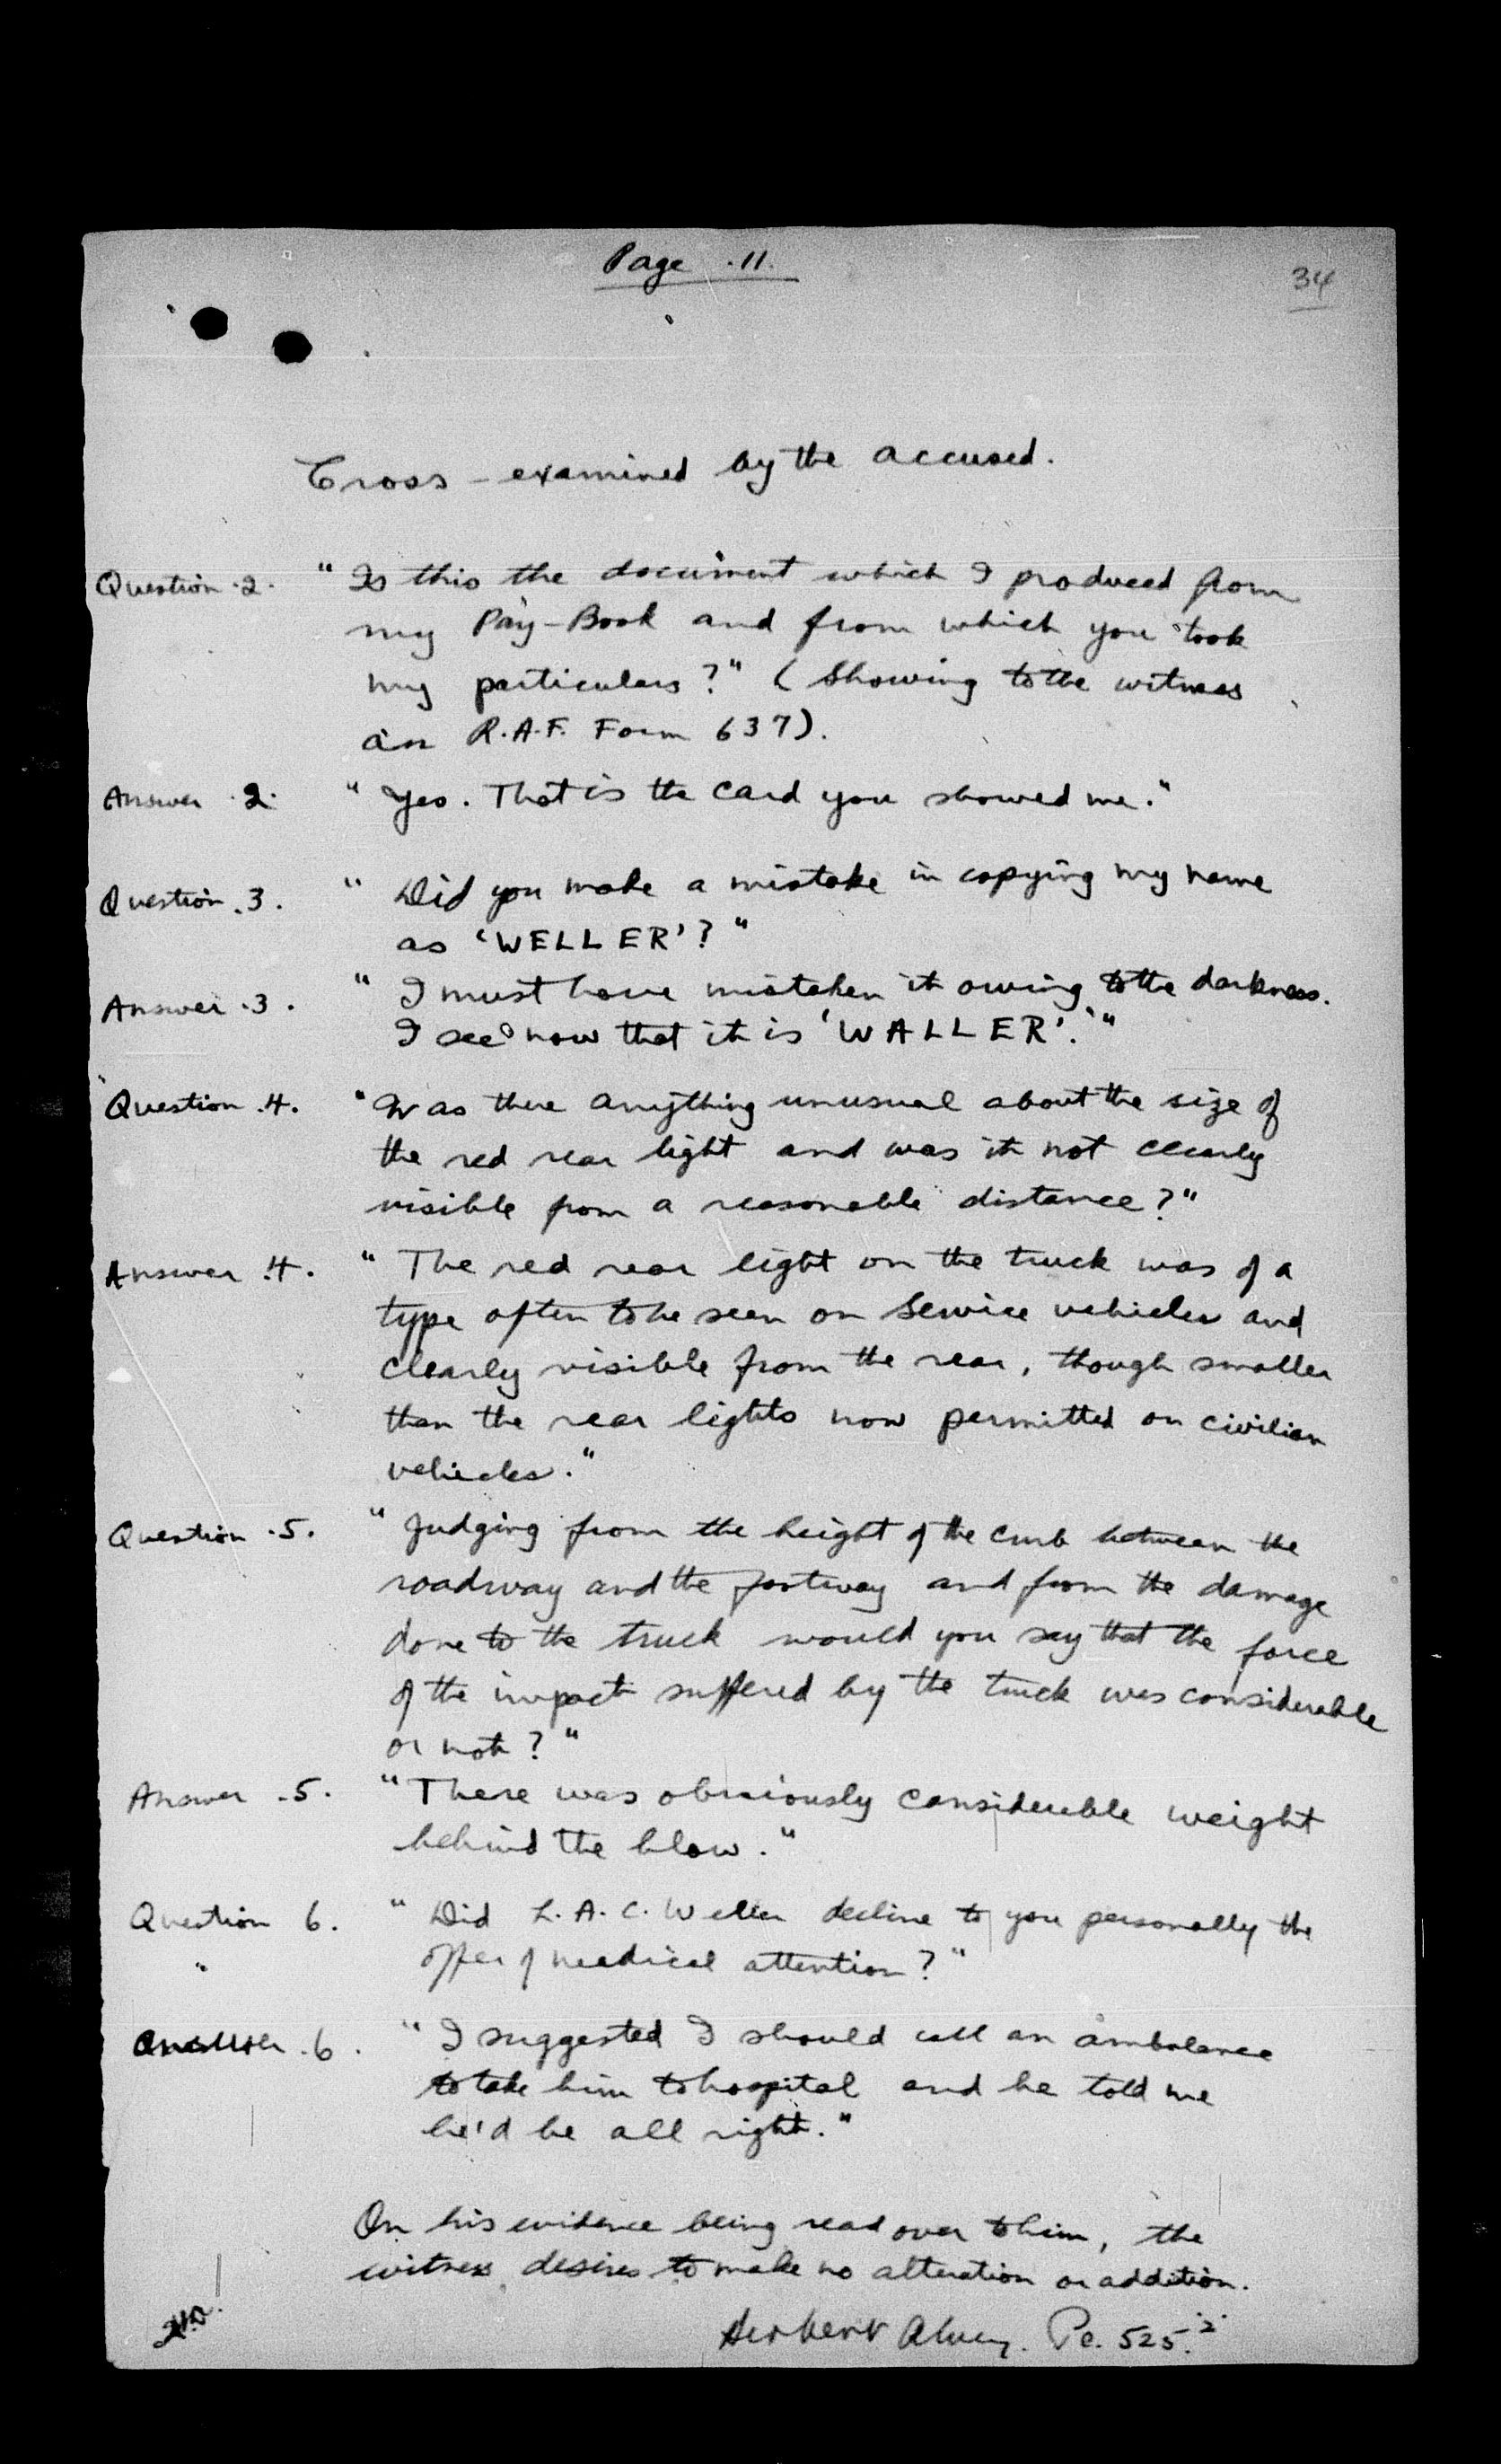 Page .11.
34
Cross-examined by the accused.
Question .2. " Is this the document which I produced from
my Pay-Book and from which you took
my particulars?" (Showing to the witness
an R.A.F. Form 637).
Answer .2. " Yes. That is the card you showed me."
Question .3. " Did you make a mistake in copying my name
as 'WELLER'?"
Answer .3. " I must have mistaken it owing to the darkness.
I see now that it is 'WALLER'."
Question .4. " Was there anything unusual about the size of
the red rear light and was it not clearly
visible from a reasonable distance?"
Answer .4. " The red rear light on the truck was of a
type often to be seen on Service vehicles and
clearly visible from the rear, though smaller
than the rear lights now permitted on civilian
vehicles."
Question .5. " Judging from the height of the curb between the
roadway and the footway and from the damage
done to the truck would you say that the force
of the impact suffered by the truck was considerable
or not?"
Answer .5. " There was obviously considerable weight
behind the blow."
Question 6. " Did L.A.C. Weller decline to you personally the
offer of medical attention?"
Answer .6. " I suggested I should call an ambulance
to take him to hospital and he told me
he'd be all right."
On his evidence being read over to him, the
witness desires to make no alteration or addition.
Herbert Pc. 525.